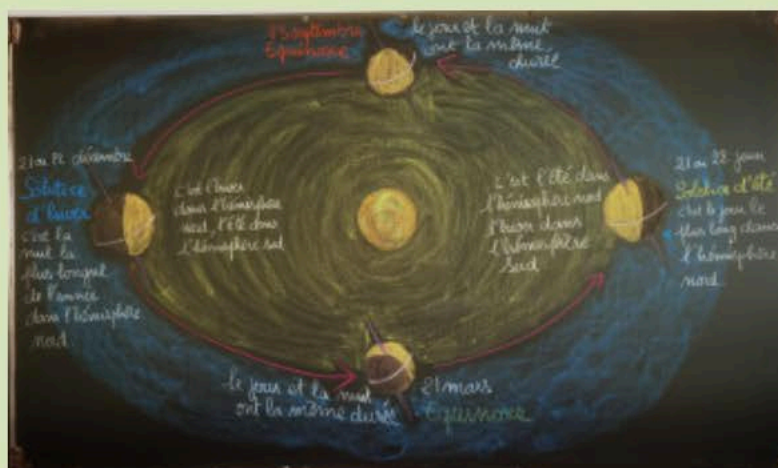 23 septembre
Equinoxe
le jour et la nuit
ont la même
durée
21 ou 22 décembre
Solstice
d'hiver
c'est la
nuit la
plus longue
de l'année
dans l'hémisphère
nord
c'est l'hiver
dans l'hémisphère
nord, l'été dans
l'hémisphère sud
c'est l'été dans
l'hémisphère nord
l'hiver dans
l'hémisphère
sud
21 ou 22 juin
Solstice d'été
c'est le jour le
plus long dans
l'hémisphère
nord
le jour et la nuit
ont la même durée
21 mars
Equinoxe